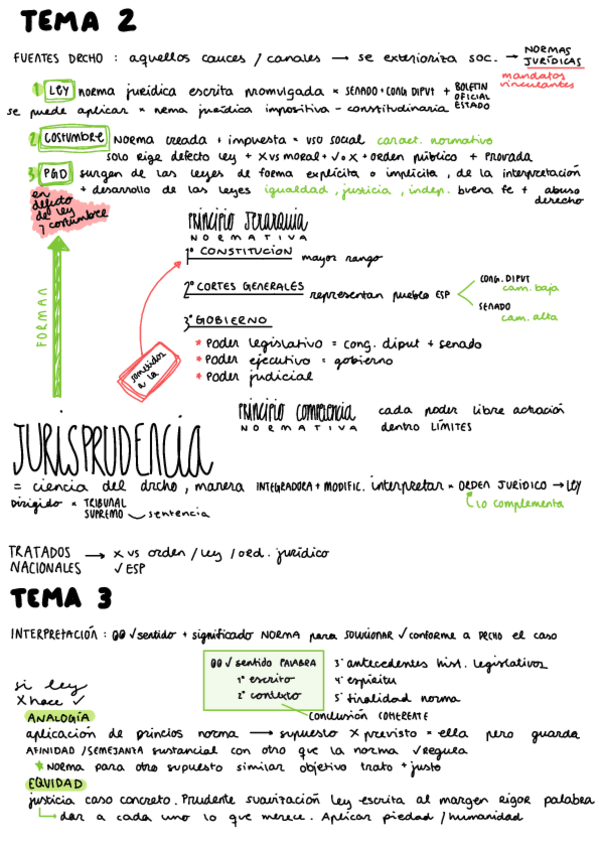 TEMA 2
FUENTES DRCHO : aquellos cauces / canales → se exterioriza soc. → NORMAS JURÍDICAS
mandatos vinculantes
1 LEY norma jurídica escrita promulgada = SENADO + CONG. DIPUT + BOLETIN OFICIAL ESTADO
se puede aplicar = nema jurídica impositiva - constitudinaria
2 COSTUMBRE NORMA creada + impuesta = USO social caract. normativo
SOLO RIGE defecto ley + X vs moral + √ o X + ORDEN público + PROVADA
3 PGD surgen de las leyes de forma explícita o implícita, de la interpretación
+ desarrollo de las leyes igualdad, justicia, indep. buena fe + abuso derecho
en defecto de ley y costumbre
FORMAN
PRINCIPIO JERARQUIA
NORMATIVA
1º CONSTITUCION mayor rango
2º CORTES GENERALES representan pueblo ESP
CONG. DIPUT
cam. baja
SENADO
cam. alta
3º GOBIERNO
* Poder legislativo = cong. diput + senado
* Poder ejecutivo = gobierno
* Poder judicial
sometidos a la
PRINCIPIO COMPETENCIA
NORMATIVA
cada poder libre actuación
dentro LÍMITES
JURISPRUDENCIA
= ciencia del drcho, manera INTEGRADORA + MODIFIC. interpretar = ORDEN JURÍDICO → LEY
lo complementa
Dirigido = TRIBUNAL SUPREMO sentencia
TRATADOS NACIONALES → X vs orden / ley / ord. jurídico
√ ESP
TEMA 3
INTERPRETACIÓN : √ sentido + significado NORMA para SOLUCIONAR √ conforme a DRCHO el caso
√ sentido PALABRA
1º escrito
2º contexto
3º antecedentes hist. legislativos
4º espíritu
5º finalidad norma
conclusión COHERENTE
si ley
X hace √
ANALOGÍA
aplicación de princios norma → supuesto X previsto = ella pero guarda
AFINIDAD / SEMEJANZA sustancial con otro que la norma √ regula
* NORMA para otro supuesto similar objetivo trato + justo
EQUIDAD
justicia caso concreto. Prudente suavización ley escrita al margen rigor palabra
dar a cada uno lo que merece. Aplicar piedad / humanidad